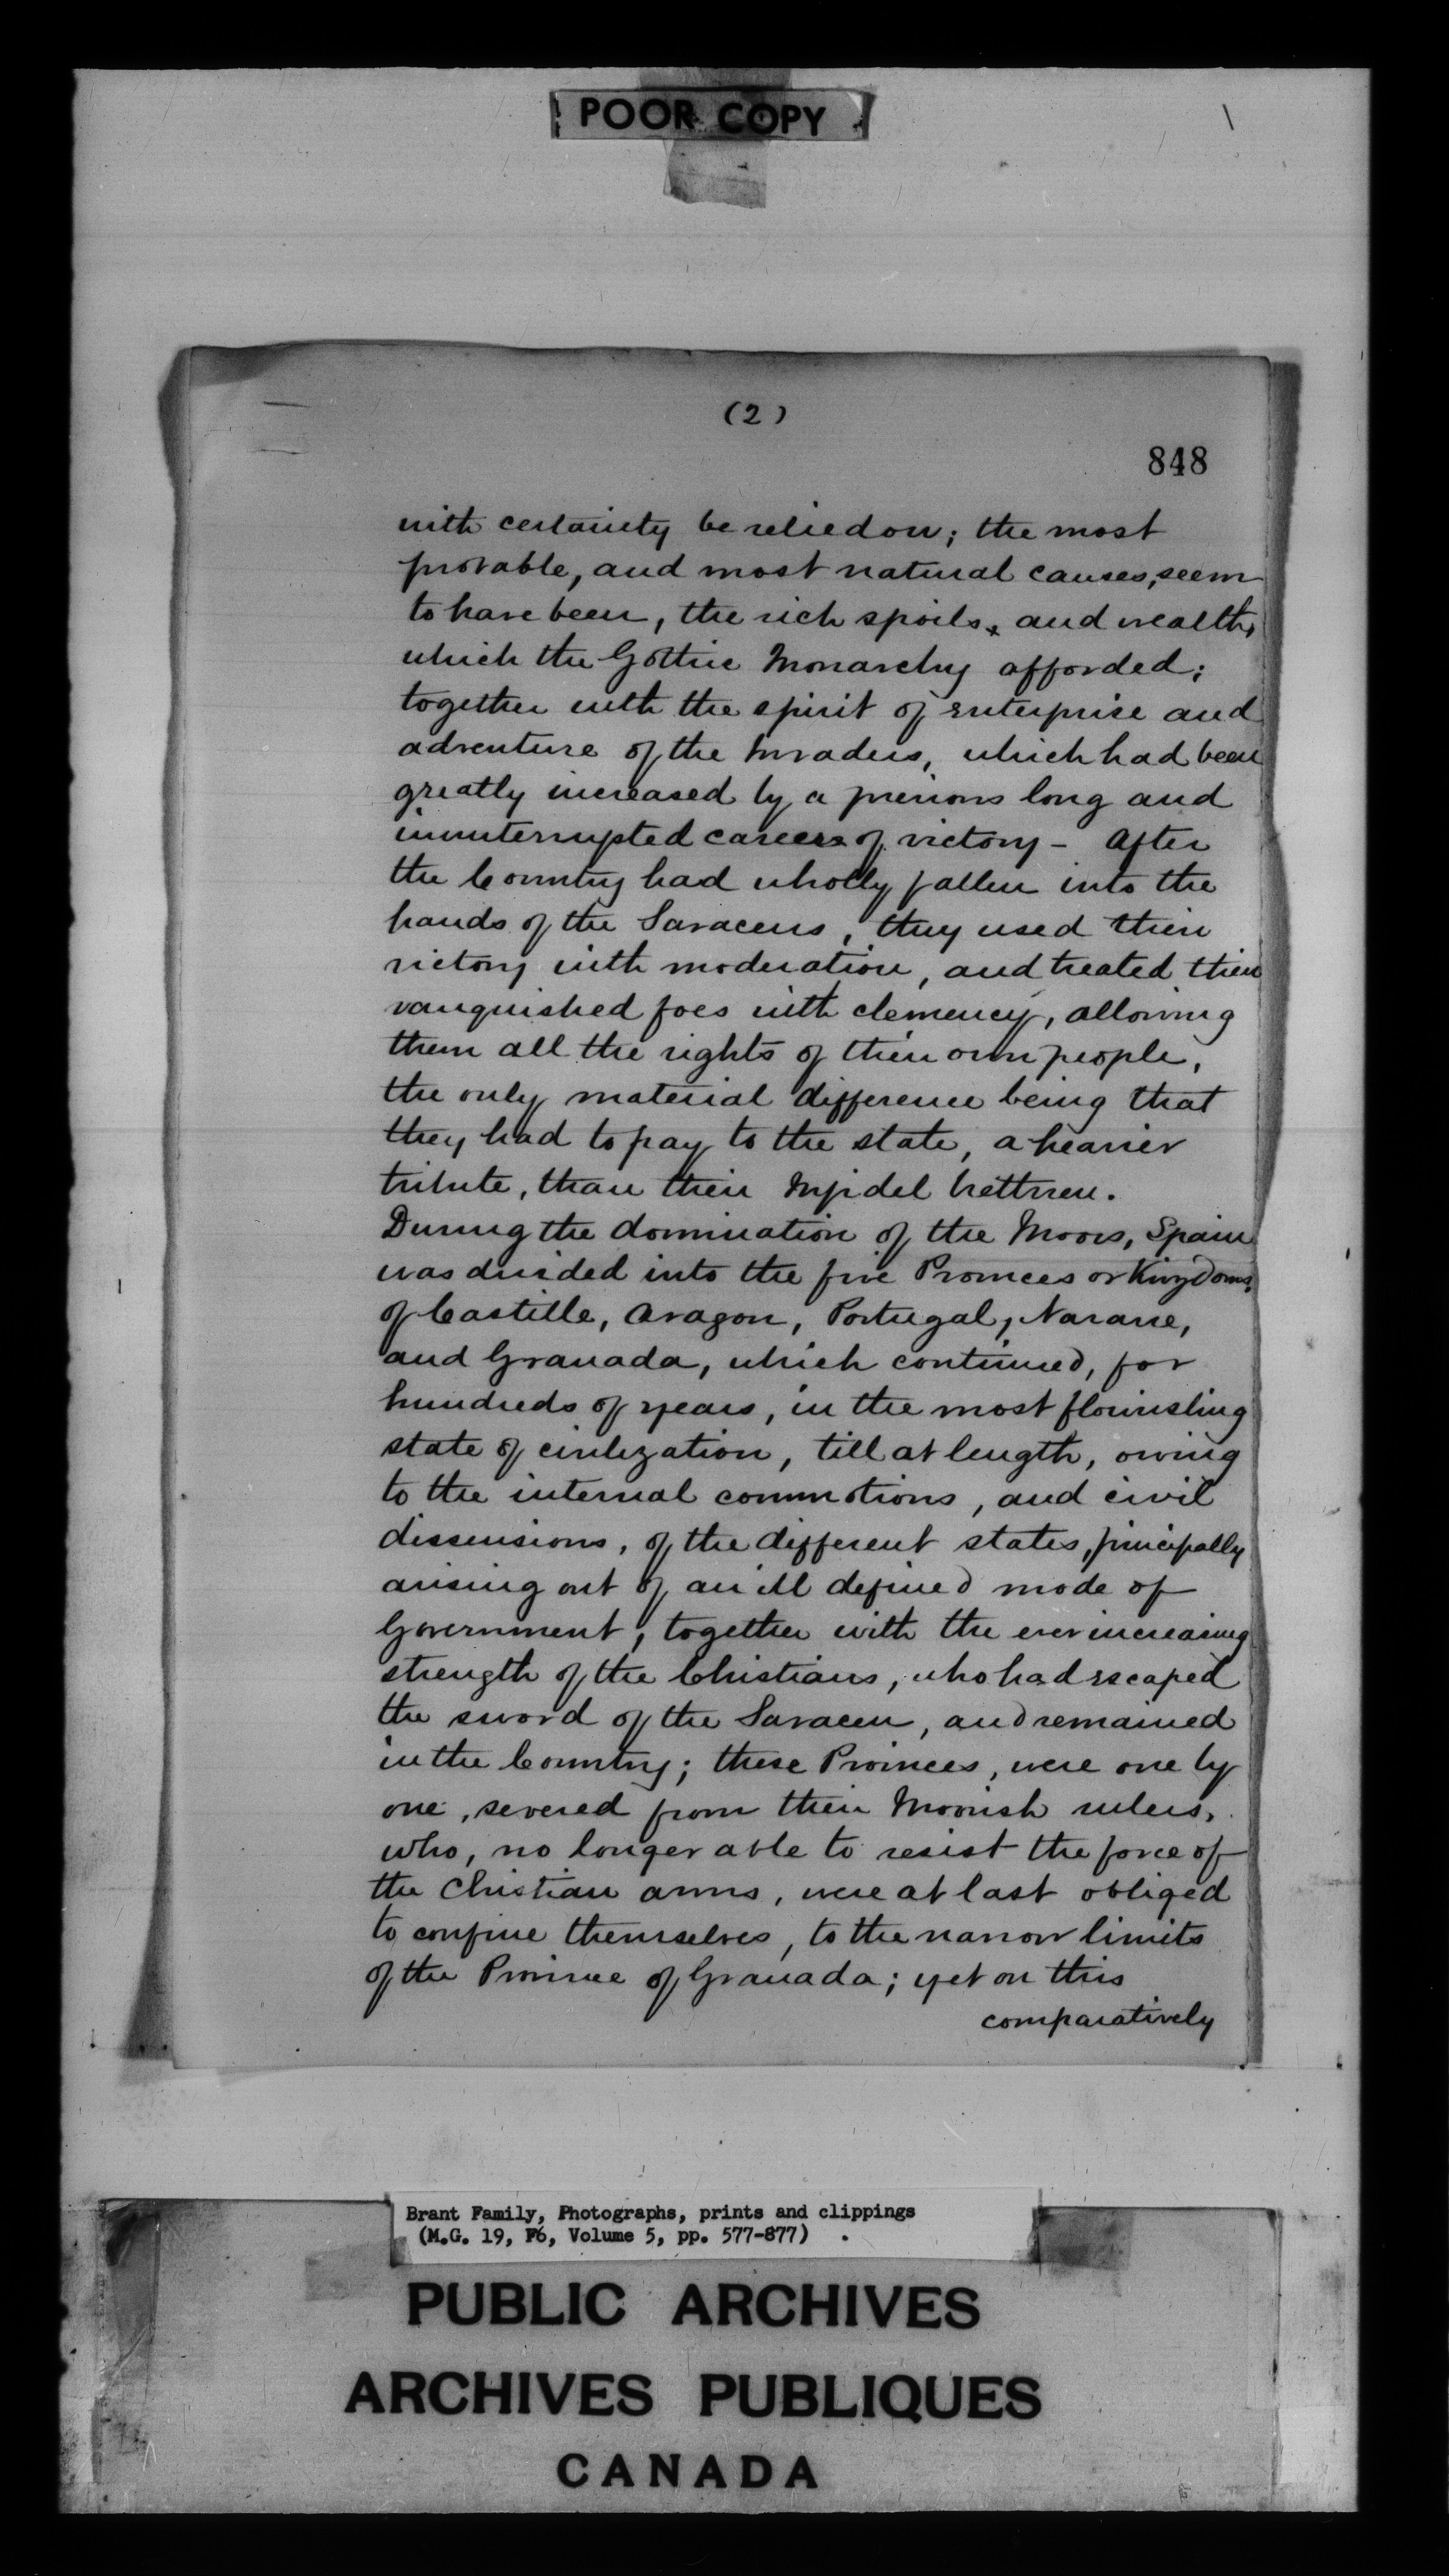 POOR COPY
(2)
848
with certainty be relied on; the most
probable, and most natural causes, seem
to have been, the rich spoils, and wealth,
which the Gothic Monarchy afforded;
together with the spirit of enterprise and
adventure of the Invaders, which had been
greatly increased by a previous long and
uninterrupted career of victory – After
the Country had wholly fallen into the
hands of the Saracens, they used their
victory with moderation, and treated their
vanquished foes with clemency, allowing
them all the rights of their own people,
the only material difference being that
they had to pay to the state, a heavier
tribute, than their Infidel brethren.
During the domination of the Moors, Spain
was divided into the five Provinces or Kingdoms,
of Castille, Aragon, Portugal, Navarre,
and Granada, which continued, for
hundreds of years, in the most flourishing
state of civilization, till at length, owing
to the internal commotions, and civil
dissensions, of the different states, principally
arising out of an ill defined mode of
Government, together with the ever increasing
strength of the Christians, who had escaped
the sword of the Saracen, and remained
in the Country; these Provinces, were one by
one, severed from their Moorish rulers,
who, no longer able to resist the force of
the Christian arms, were at last obliged
to confine themselves, to the narrow limits
of the Province of Granada; yet on this
comparatively
Brant Family, Photographs, prints and clippings
(M.G. 19, F6, Volume 5, pp. 577-877)
PUBLIC ARCHIVES
ARCHIVES PUBLIQUES
CANADA